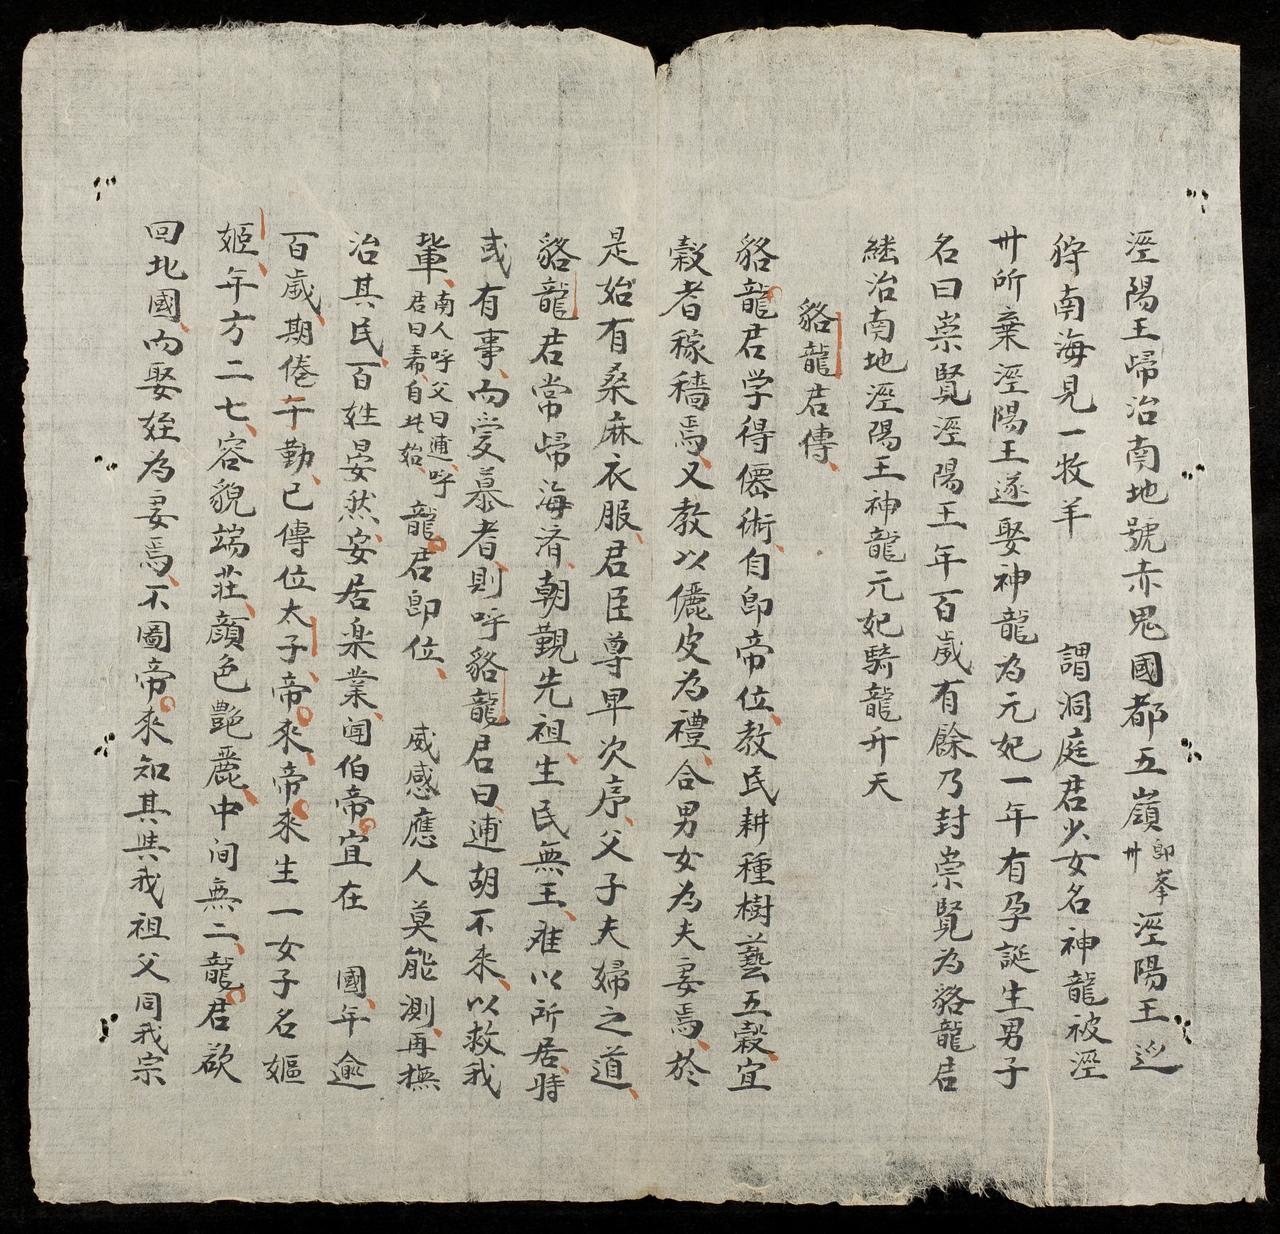 涇陽王歸治南地號赤鬼國都五嶺即峯卅涇陽王巡
狩南海見一牧羊 謂洞庭君少女名神龍被涇
卅所棄涇陽王遂娶神龍為元妃一年有孕誕生男子
名曰崇覽涇陽王年百歲有餘乃封崇覽為貉龍君
継治南地涇陽王神龍元妃騎龍升天
貉龍君傳
貉龍君学得僊術自即帝位教民耕種樹藝五穀宜
穀者稼穡焉又教以儷皮為禮合男女為夫妻焉於
是始有桑麻衣服君臣尊卑次序父子夫婦之道
貉龍君常歸海濟朝覲先祖生民無王难以所居時
或有事向爱慕者則呼貉龍君曰逋胡不来以救我
輩南人呼父曰逋呼君曰希自此始龍君即位 威感應人莫能測再撫
治其民百姓晏然安居楽業闻伯帝宜在 國年逾
百歲期倦于勤已傳位太子帝來帝來生一女子名嫗
姬年方二七容貌端莊顔色艶麗中间無二龍君欲
回北國向娶姪為妻焉不圖帝來知其與我祖父同我宗